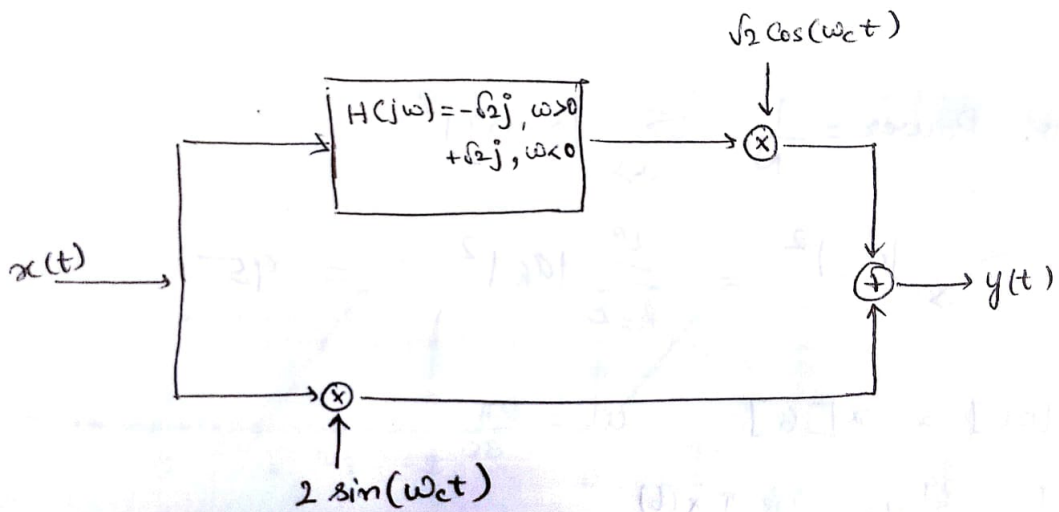 √2 Cos(ωct)
H(jω) = -√2j, ω>0
+√2j, ω<0
x
x(t)
+
y(t)
x
2 sin(ωct)